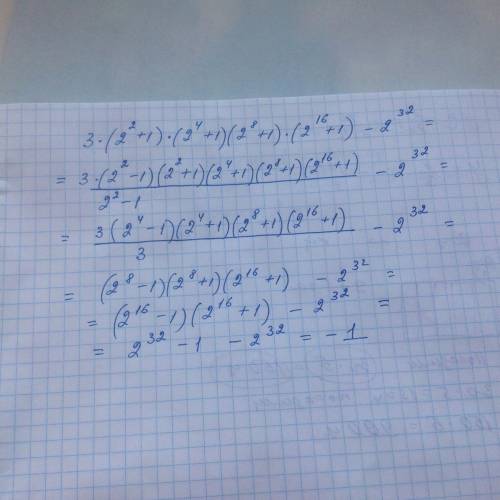 3·(2²+1)·(2⁴+1)(2⁸+1)·(2¹⁶+1) - 2³² =
= 3·(2²-1)(2²+1)(2⁴+1)(2⁸+1)(2¹⁶+1) / 2²-1 - 2³² =
= 3(2⁴-1)(2⁴+1)(2⁸+1)(2¹⁶+1) / 3 - 2³² =
= (2⁸-1)(2⁸+1)(2¹⁶+1) - 2³² =
= (2¹⁶-1)(2¹⁶+1) - 2³² =
= 2³² - 1 - 2³² = - 1